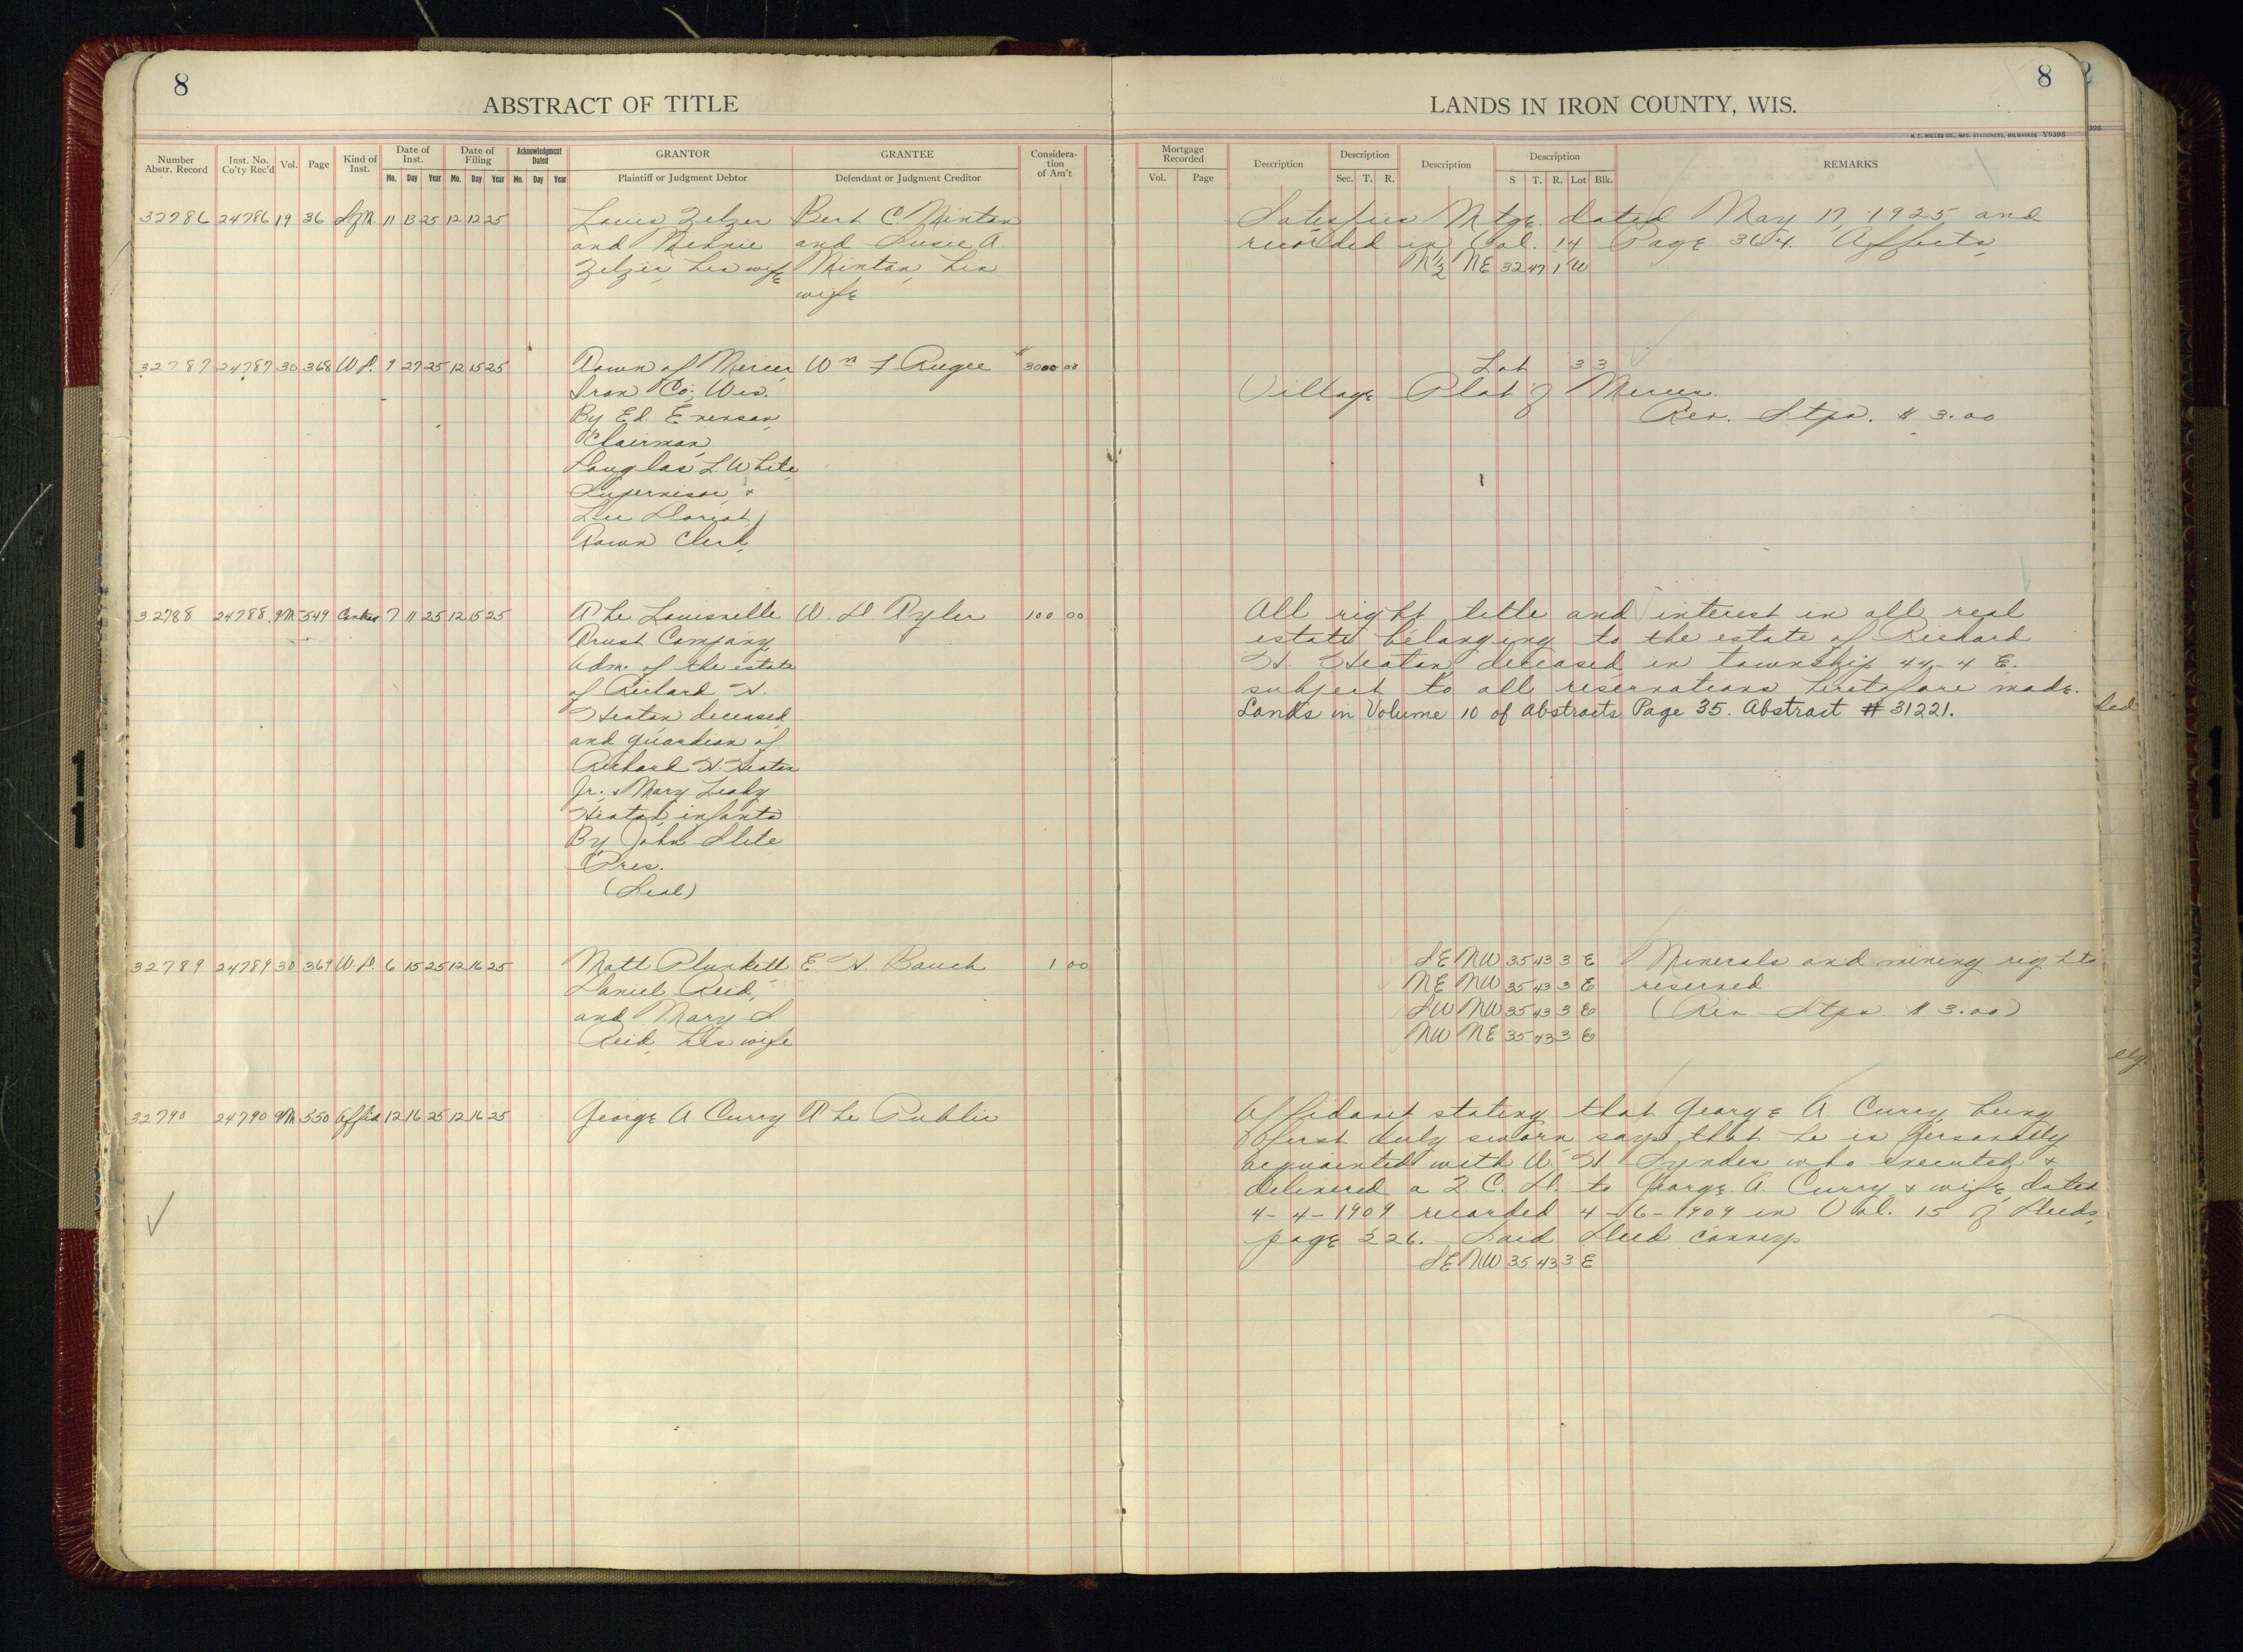 8
8
ABSTRACT OF TITLE
LANDS IN IRON COUNTY, WIS.
H. C. MILLER CO., MFG. STATIONERS, MILWAUKEE V9398
398
Number Abstr. Record
Inst. No. Co'ty Rec'd
Vol.
Page
Kind of Inst.
Date of Inst.
Mo. Day Year
Date of Filing
Mo. Day Year
Acknowledgment Dated
Mo. Day Year
GRANTOR
Plaintiff or Judgment Debtor
GRANTEE
Defendant or Judgment Creditor
Considera-
tion
of Am't
Mortgage Recorded
Vol. Page
Description
Description
Sec. T. R.
Description
Description
S T. R. Lot Blk.
REMARKS
32786 24786 19 36 11 13 25 12 12 25
Louis Zelzer
and Minnie
Zelzer, his wife
Bert C Minton
and Susie A.
Minton, his
wife
Satisfies Mtge. dated May 17, 1925 and
recorded in Vol. 14 Page 364. Affects
N½ NE 32 47 1 W
32787 24787 30 368 W.D. 9 27 25 12 15 25
Town of Mercer
Iron Co., Wis.
By Ed Evenson,
Chairman,
Douglas L. White,
Supervisor, &
Town Clerk,
Wm F Rugee
3000 00
Lot 33
Village Plat of Mercer
Rev. Stps. $3.00
32788 24788 9M 549 7 11 25 12 15 25
The Louisville
Trust Company,
Adm. of the estate
of Richard H.
Heaton deceased
and guardian of
Richard H. Heaton
Jr. & Mary Leaby
Heaton, infants
By John Stite
Pres.
(Seal)
W. D. Tyler
100 00
All right title and interest in all real
estate belonging to the estate of Richard
H. Heaton deceased in township 44-4 E.
subject to all reservations heretofore made.
Lands in Volume 10 of Abstracts Page 35. Abstract # 31221.
ded
32789 24789 30 369 W.D. 6 15 25 12 16 25
Matt Plunkett
Daniel Reid,
and Mary S.
Reid, his wife
E H Bauch
1 00
SE NW 35 43 3 E
NE NW 35 43 3 E
SW NW 35 43 3 E
NW NE 35 43 3 E
Minerals and mining rights
reserved
(Rev Stps $3.00)
32790 24790 9M 550 Affid 12 16 25 12 16 25
George A Curry
The Public
Affidavit stating that George A. Curry, being
first duly sworn says, that he is personally
acquainted with W. H. Synder who executed &
delivered a 2 C. D. to George A. Curry & wife, dated
4-4-1909 recorded 4-6-1909 in Vol. 15 of Deeds,
page 226. Said Deed conveys
SE NW 35 43 3 E